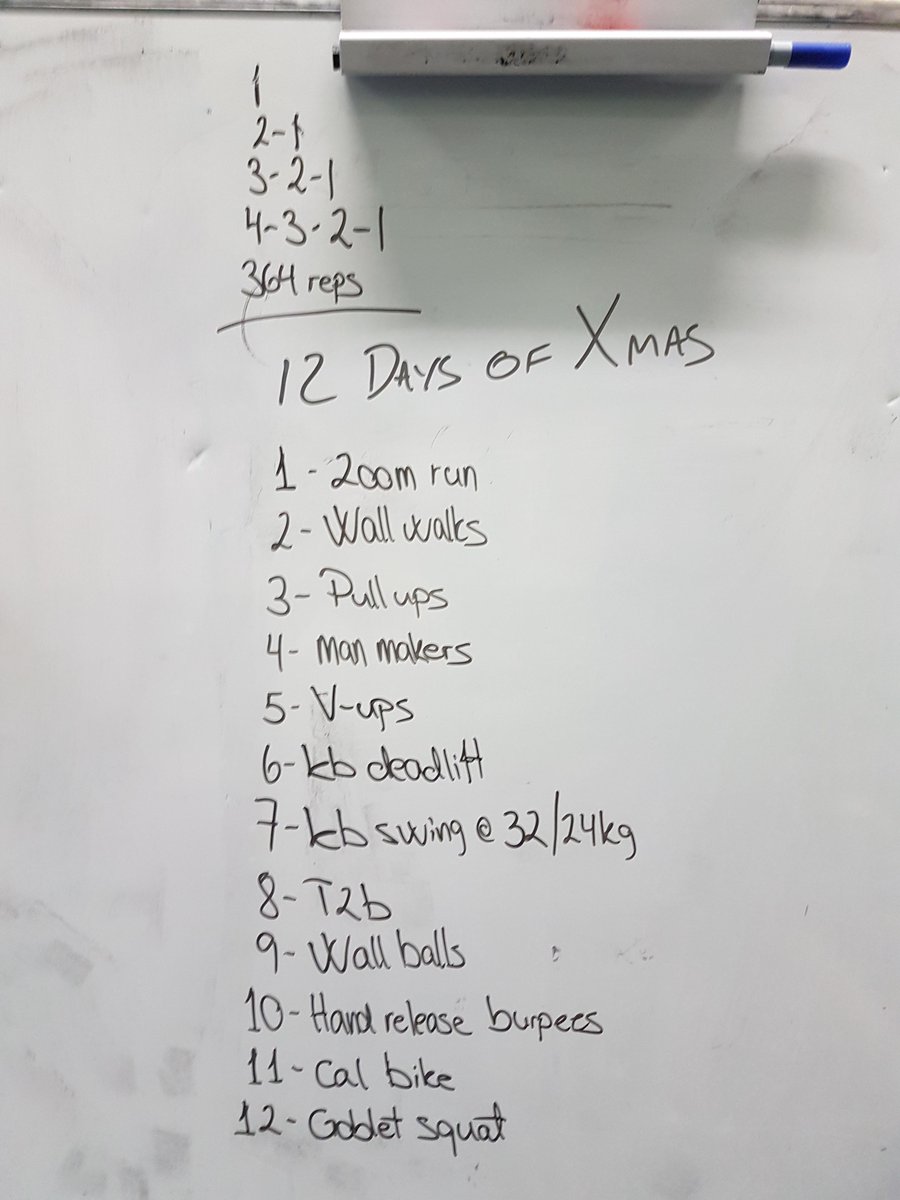 1
2-1
3-2-1
4-3-2-1
364 reps
12 DAYS OF XMAS
1 - 200m run
2 - Wall walks
3 - Pull ups
4 - man makers
5 - V-ups
6 - kb deadlift
7 - kb swing @ 32/24kg
8 - T2b
9 - Wall balls
10 - Hand release burpees
11 - Cal bike
12 - Goblet squat